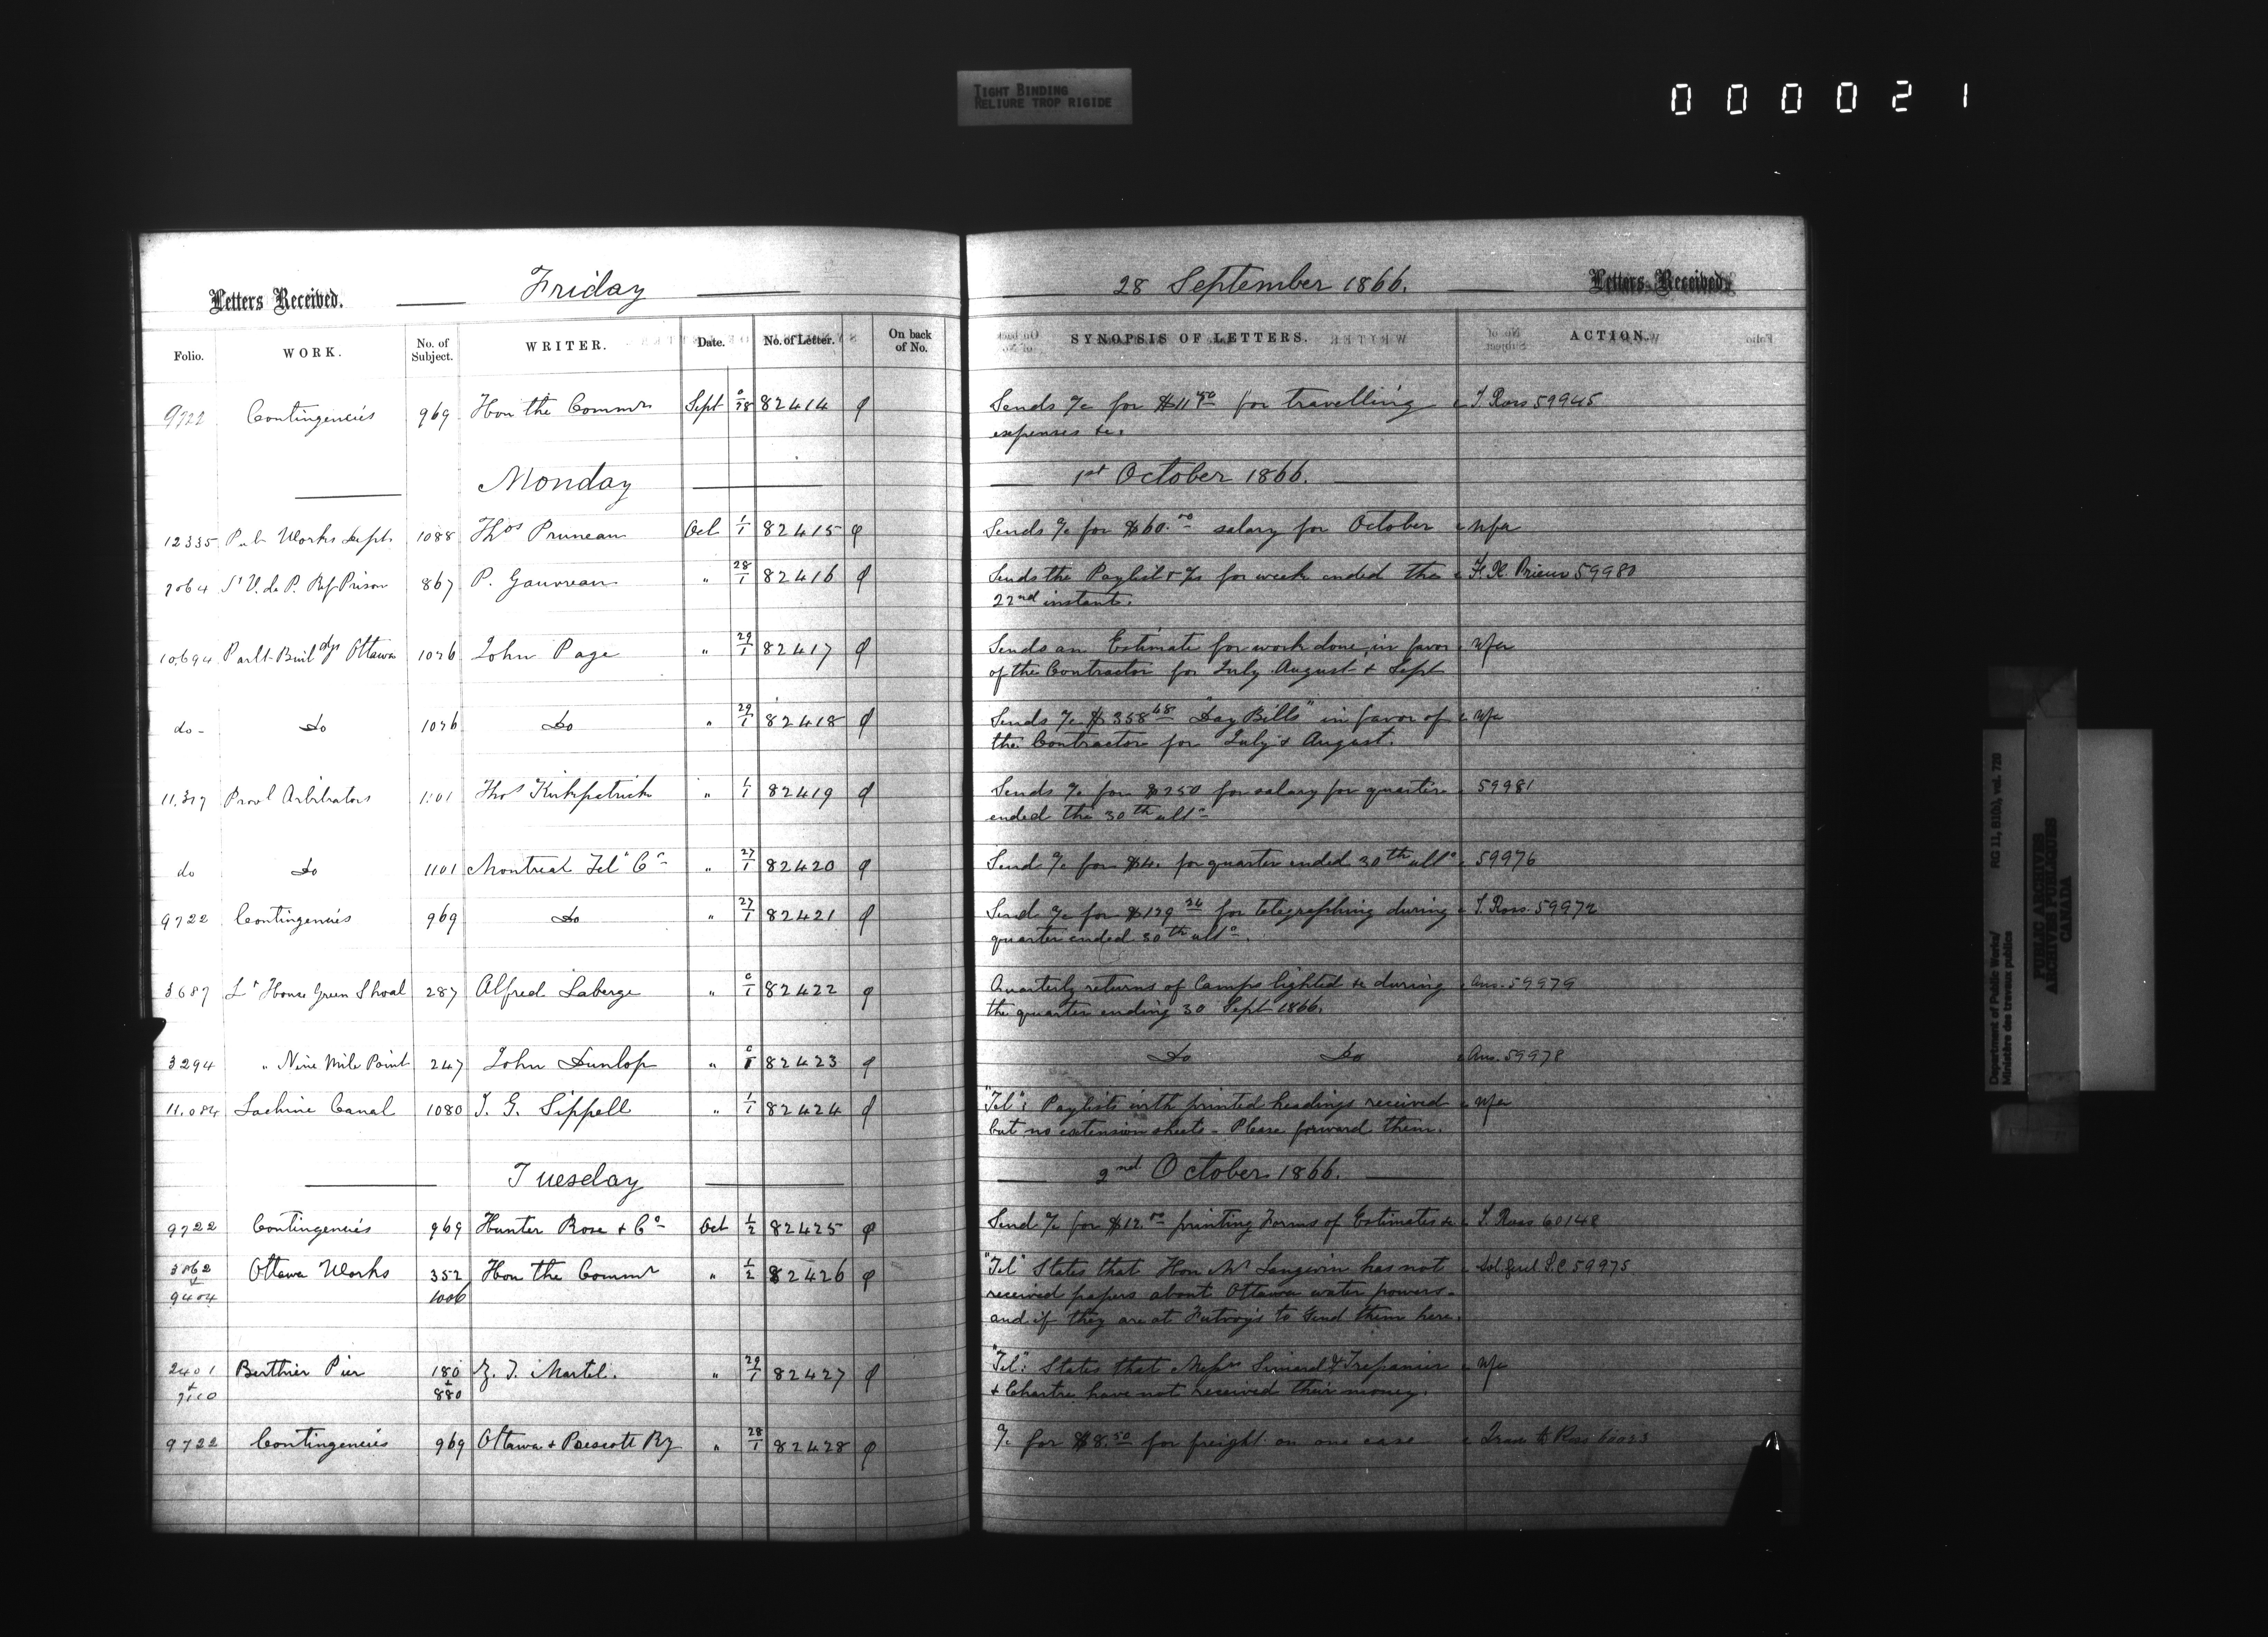 TIGHT BINDING
RELIURE TROP RIGIDE
000021
Letters Received. Friday 28 September 1866. Letters Received.
Folio. WORK. No. of Subject. WRITER. Date. No. of Letter. On back of No. SYNOPSIS OF LETTERS. ACTION.
9722 Contingencies 969 Hon the Commr Sept 0/28 82414 Sends a/c for $11.50 for travelling T. Ross 59945
expenses &c.
Monday 1st October 1866.
12335 Pub Works Dept. 1088 Thos Pruneau Oct 1/1 82415 Sends a/c for $60.00 salary for October Nfa
7064 St V. de P. Ref Prison 867 P. Gauvreau " 28/1 82416 Sends the Paylist & a/cs for week ended the F. X. Prieur 59980
22nd instant.
10,694 Parlt Buildgs Ottawa 1026 John Page " 29/1 82417 Sends an Estimate for work done, in favor Nfa
of the Contractor for July August & Sept
do - Do 1026 Do " 29/1 82418 Sends a/c $358.48 "Day Bills" in favor of Nfa
the Contractor for July & August.
11,317 Provl Arbitrators 1101 Thos Kirkpatrick " 1/1 82419 Sends a/c for $250 for salary for quarter 59981
ended the 30th ulto
do Do 1101 Montreal Tel Co " 27/1 82420 Send a/c for $4. for quarter ended 30th ulto 59976
9722 Contingencies 969 Do " 27/1 82421 Send a/c for $129.26 for telegraphing during T. Ross. 59972
quarter ended 30th ulto.
3687 Lt House Green Shoal 287 Alfred Laberge " 0/1 82422 Quarterly returns of Lamps lighted &c during Ans. 59979
the quarter ending 30 Sept 1866.
3294 " Nine Mile Point 247 John Dunlop " 0/1 82423 Do Do Ans. 59978
11,084 Lachine Canal 1080 J. G. Sippell " 1/1 82424 "Tel": Paylists with printed headings received Nfa
but no extension sheets - Please forward them.
Tuesday 2nd October 1866.
9722 Contingencies 969 Hunter Rose & Co Oct 1/2 82425 Send a/c for $12.00 printing Forms of Estimates &c T. Ross 60148
3862 Ottawa Works 352 Hon the Commr " 1/2 82426 "Tel" States that Hon Mr Langevin has not Sol. Genl L.C. 59975
&
9404 1006 received papers about Ottawa water powers -
and if they are at Futvoy's to send them here.
2401 Berthier Pier 180 Z. T. Martel. " 29/1 82427 "Tel": States that Messrs Simard & Trepanier Nfa
& &
7110 880 & Chartre have not received their money.
9722 Contingencies 969 Ottawa & Prescott Ry " 28/1 82428 a/c for $8.50 for freight on one case Trans to Ross 60023
Department of Public Works/ RG 11, B1(b), vol. 720
Ministère des travaux publics
PUBLIC ARCHIVES
ARCHIVES PUBLIQUES
CANADA